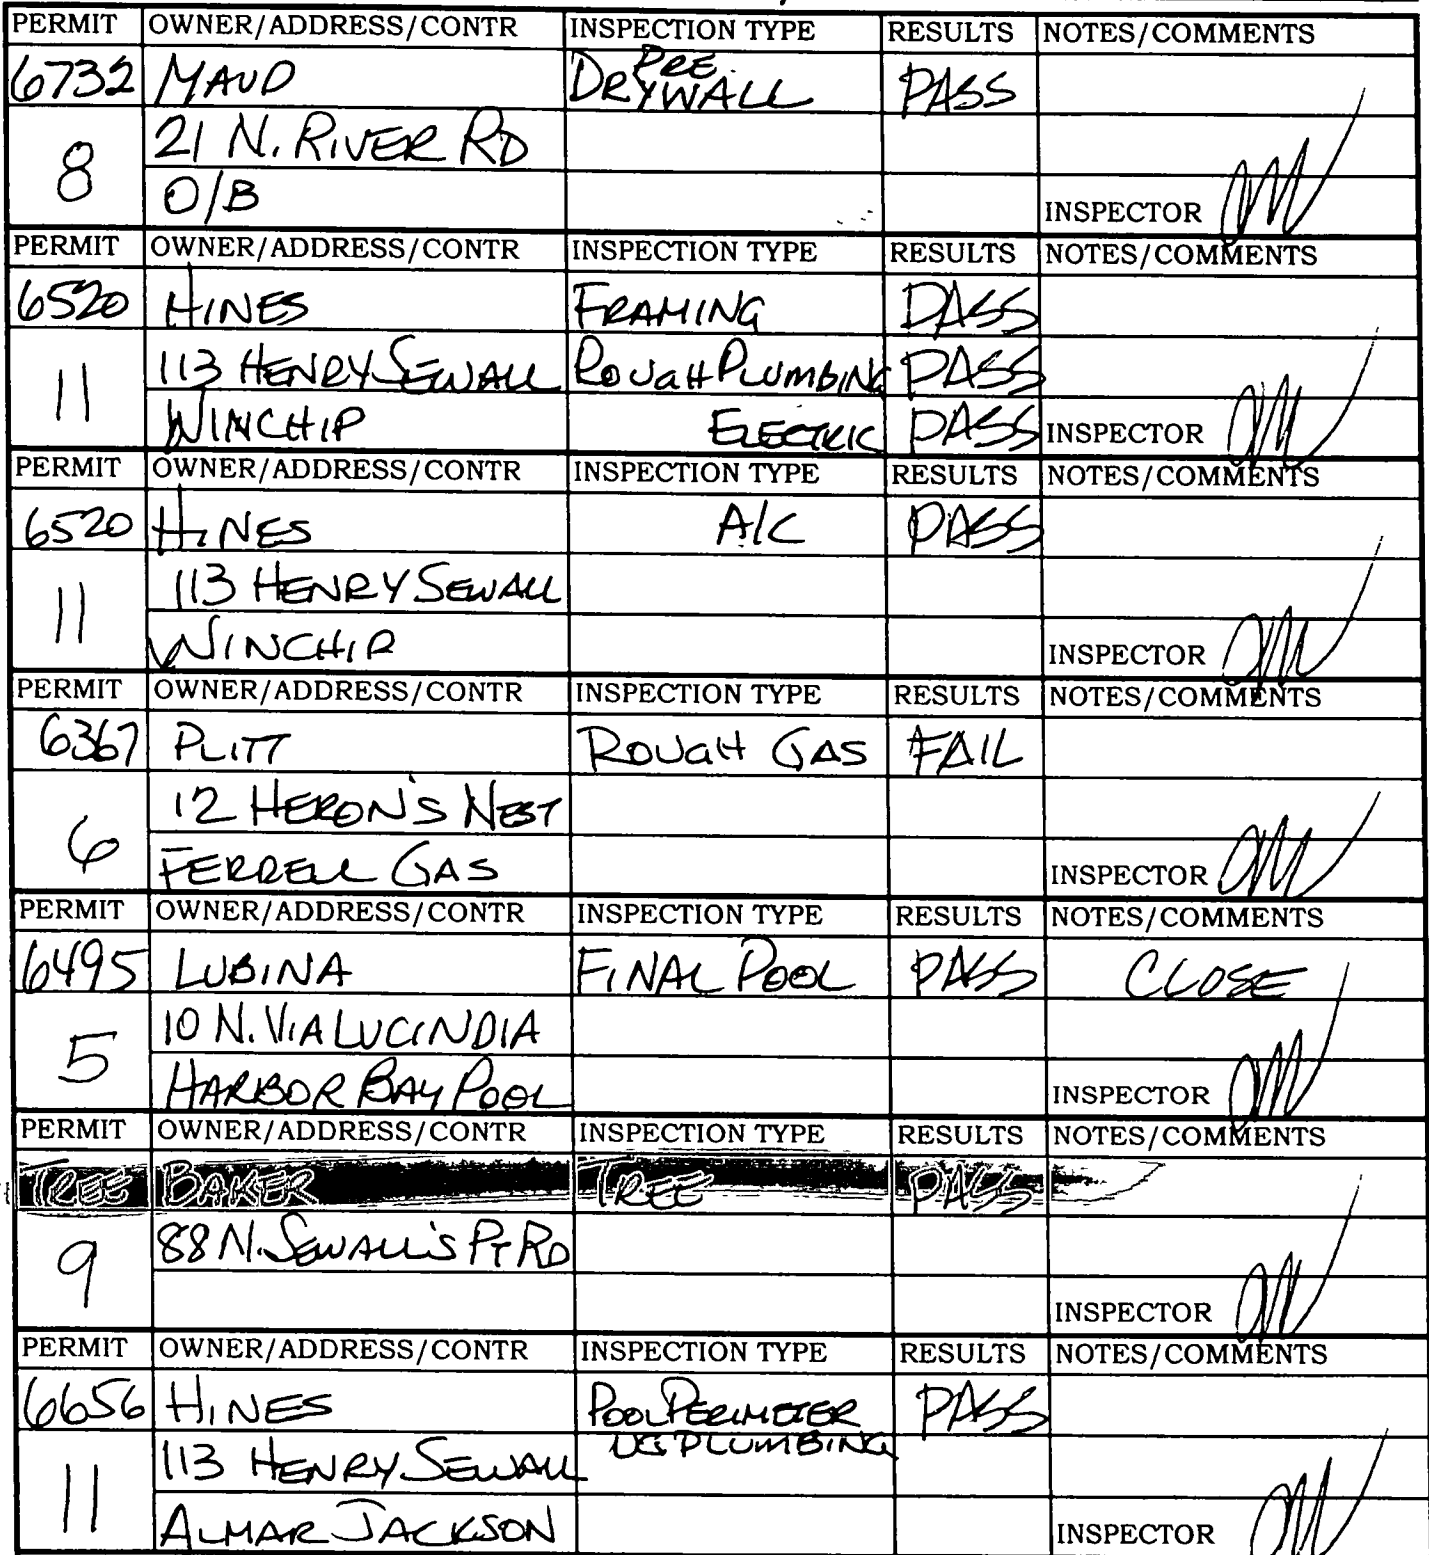 PERMIT OWNER/ADDRESS/CONTR INSPECTION TYPE RESULTS NOTES/COMMENTS
6732 MAUD DRYWALL PRE PASS
8 21 N. RIVER RD
O/B INSPECTOR
PERMIT OWNER/ADDRESS/CONTR INSPECTION TYPE RESULTS NOTES/COMMENTS
6520 HINES FRAMING PASS
11 113 HENRY SEWALL ROUGH PLUMBING PASS
WINCHIP ELECTRIC PASS INSPECTOR
PERMIT OWNER/ADDRESS/CONTR INSPECTION TYPE RESULTS NOTES/COMMENTS
6520 HINES A/C PASS
11 113 HENRY SEWALL
WINCHIP INSPECTOR
PERMIT OWNER/ADDRESS/CONTR INSPECTION TYPE RESULTS NOTES/COMMENTS
6367 PLITT ROUGH GAS FAIL
6 12 HERON'S NEST
FERRELL GAS INSPECTOR
PERMIT OWNER/ADDRESS/CONTR INSPECTION TYPE RESULTS NOTES/COMMENTS
6495 LUBINA FINAL POOL PASS CLOSE
5 10 N. VIA LUCINDIA
HARBOR BAY POOL INSPECTOR
PERMIT OWNER/ADDRESS/CONTR INSPECTION TYPE RESULTS NOTES/COMMENTS
TREE BAKER TREE PASS
9 88 N. SEWALL'S PT RD
INSPECTOR
PERMIT OWNER/ADDRESS/CONTR INSPECTION TYPE RESULTS NOTES/COMMENTS
6656 HINES POOL PERIMETER PASS
11 113 HENRY SEWALL UG PLUMBING
ALMAR JACKSON INSPECTOR